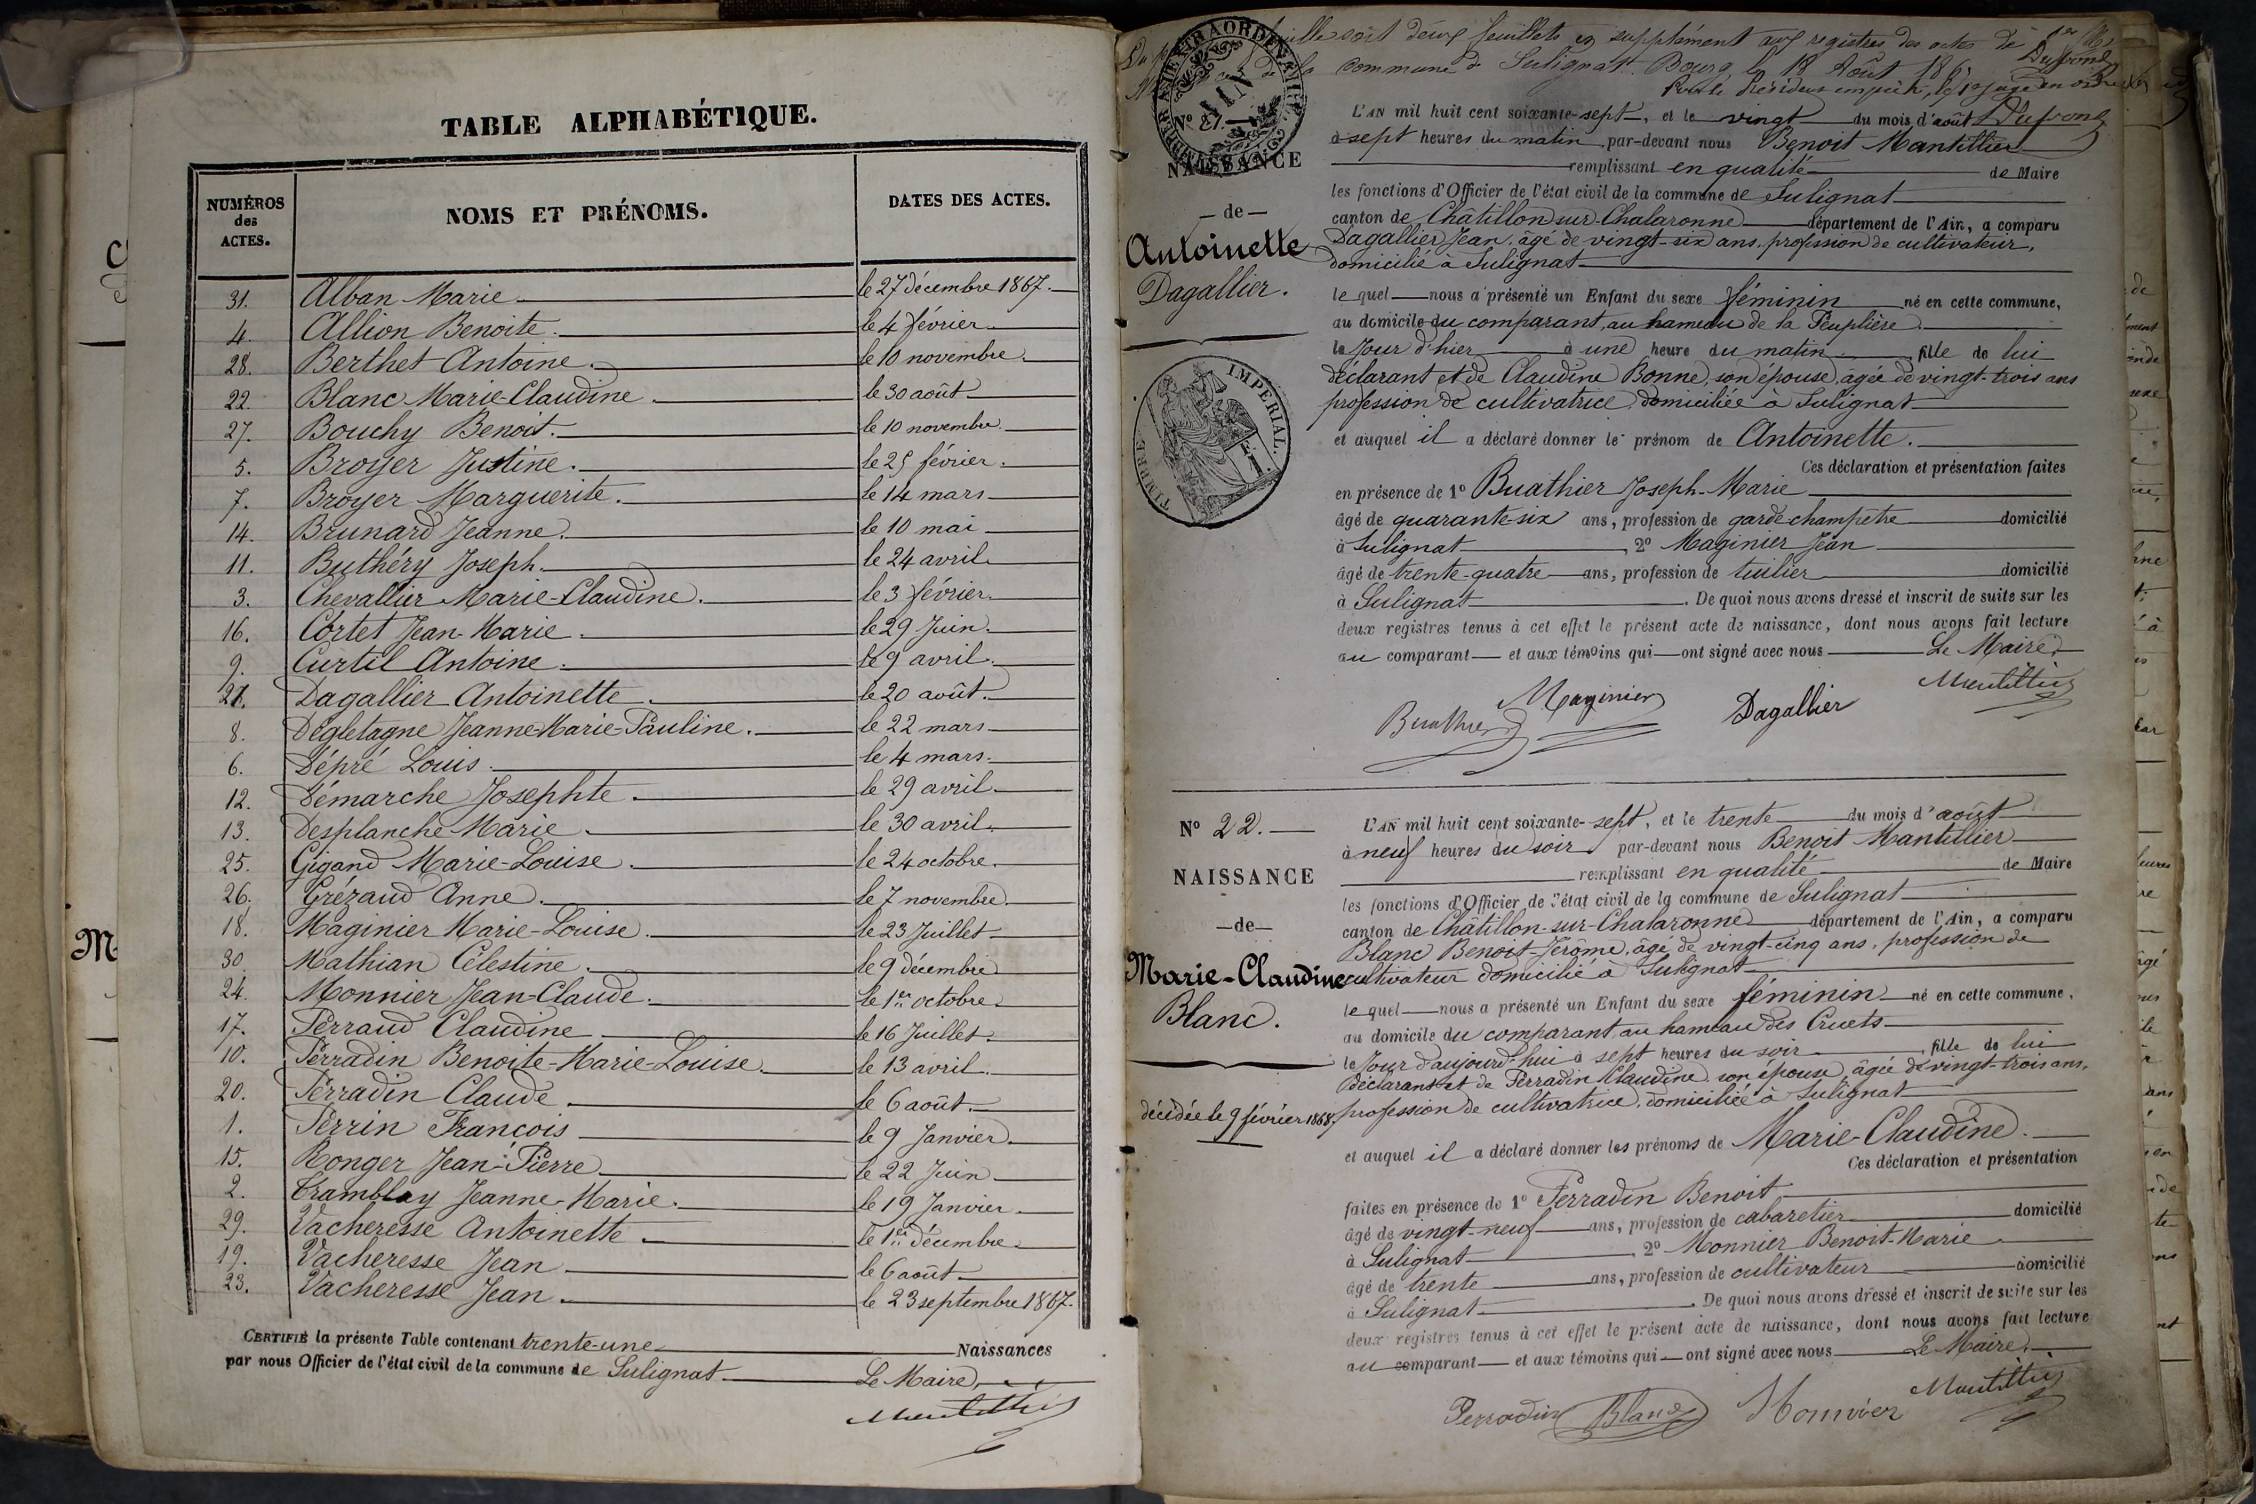 TABLE ALPHABÉTIQUE.
NUMÉROS des ACTES. NOMS ET PRÉNOMS. DATES DES ACTES.
31. Alban Marie le 27 décembre 1867.
4. Allion Benoite. le 4 février.
28. Berthet Antoine. le 10 novembre.
22. Blanc Marie-Claudine le 30 août
27. Bouchy Benoit. le 10 novembre.
5. Broyer Justine. le 25 février.
7. Broyer Marguerite. le 14 mars
14. Brunard Jeanne. le 10 mai
11. Buthéry Joseph. le 24 avril.
3. Chevallier Marie-Claudine. le 3 février.
16. Cortet Jean-Marie. le 29 Juin.
9. Curtil Antoine. le 9 avril.
21. Dagallier Antoinette. le 20 août.
8. Dégletagne Jeanne-Marie-Pauline. le 22 mars
6. Dépré Louis. le 4 mars.
12. Démarche Josephte. le 29 avril
13. Desplanche Marie. le 30 avril.
25. Gigand Marie-Louise. le 24 octobre.
26. Grézaud Anne. le 7 novembre.
18. Maginier Marie-Louise. le 23 Juillet
30. Mathian Célestine. le 9 décembre
24. Monnier Jean-Claude. le 1er octobre.
17. Perraud Claudine le 16 Juillet.
10. Perradin Benoite-Marie-Louise. le 13 avril.
20. Perradin Claude. le 6 août.
1. Perrin François le 9 Janvier.
15. Ronger Jean-Pierre le 22 Juin
2. Tramblay Jeanne-Marie. le 19 Janvier.
29. Vacheresse Antoinette le 1er décembre.
19. Vacheresse Jean le 6 août
23. Vacheresse Jean. le 23 septembre 1867.
CERTIFIÉ la présente Table contenant trente-une Naissances
par nous Officier de l'état civil de la commune de Sulignat
Le Maire,
Mantillier
soit deux feuillets en supplément aux registres des actes de
de la commune de Sulignat. Bourg le 18 Août 186
Dupond
AIN
No 21.
NAISSANCE
— de —
Antoinette
Dagallier.
TIMBRE IMPÉRIAL.
L'AN mil huit cent soixante-sept, et le vingt du mois d'août
à sept heures du matin par-devant nous Benoit Mantillier
remplissant en qualité de Maire
les fonctions d'Officier de l'état civil de la commune de Sulignat
canton de Châtillon-sur-Chalaronne département de l'Ain, a comparu
Dagallier Jean, âgé de vingt-six ans, profession de cultivateur,
domicilié à Sulignat
le quel nous a présenté un Enfant du sexe féminin né en cette commune,
au domicile du comparant, au hameau de la Peuplière.
le Jour d'hier à une heure du matin fille de lui
déclarant et de Claudine Bonne, son épouse, âgée de vingt-trois ans
profession de cultivatrice, domiciliée à Sulignat
et auquel il a déclaré donner le prénom de Antoinette.
Ces déclaration et présentation faites
en présence de 1º Buathier Joseph-Marie
âgé de quarante-six ans, profession de garde-champêtre domicilié
à Sulignat 2º Maginier Jean
âgé de trente-quatre ans, profession de tuilier domicilié
à Sulignat. De quoi nous avons dressé et inscrit de suite sur les
deux registres tenus à cet effet le présent acte de naissance, dont nous avons fait lecture
au comparant et aux témoins qui ont signé avec nous Le Maire.
Buathier Maginier Dagallier Mantillier
No 22.
NAISSANCE
—de—
Marie-Claudine
Blanc.
décédée le 9 février 1868.
L'AN mil huit cent soixante-sept, et le trente du mois d'août
à neuf heures du soir par-devant nous Benoit Mantillier
remplissant en qualité de Maire
les fonctions d'Officier de l'état civil de la commune de Sulignat
canton de Châtillon-sur-Chalaronne département de l'Ain, a comparu
Blanc Benoit-Jérôme, âgé de vingt-cinq ans, profession de
cultivateur domicilié à Sulignat
le quel nous a présenté un Enfant du sexe féminin né en cette commune,
au domicile du comparant au hameau des Cruets
le Jour d'aujourd'hui à sept heures du soir fille de lui
déclarant et de Perradin Claudine son épouse, âgée de vingt-trois ans,
profession de cultivatrice, domiciliée à Sulignat
et auquel il a déclaré donner les prénoms de Marie-Claudine.
Ces déclaration et présentation
faites en présence de 1º Perradin Benoit
âgé de vingt-neuf ans, profession de cabaretier domicilié
à Sulignat 2º Monnier Benoit-Marie
âgé de trente ans, profession de cultivateur domicilié
à Sulignat. De quoi nous avons dressé et inscrit de suite sur les
deux registres tenus à cet effet le présent acte de naissance, dont nous avons fait lecture
au comparant et aux témoins qui ont signé avec nous Le Maire.
Perradin Blanc Monnier Mantillier